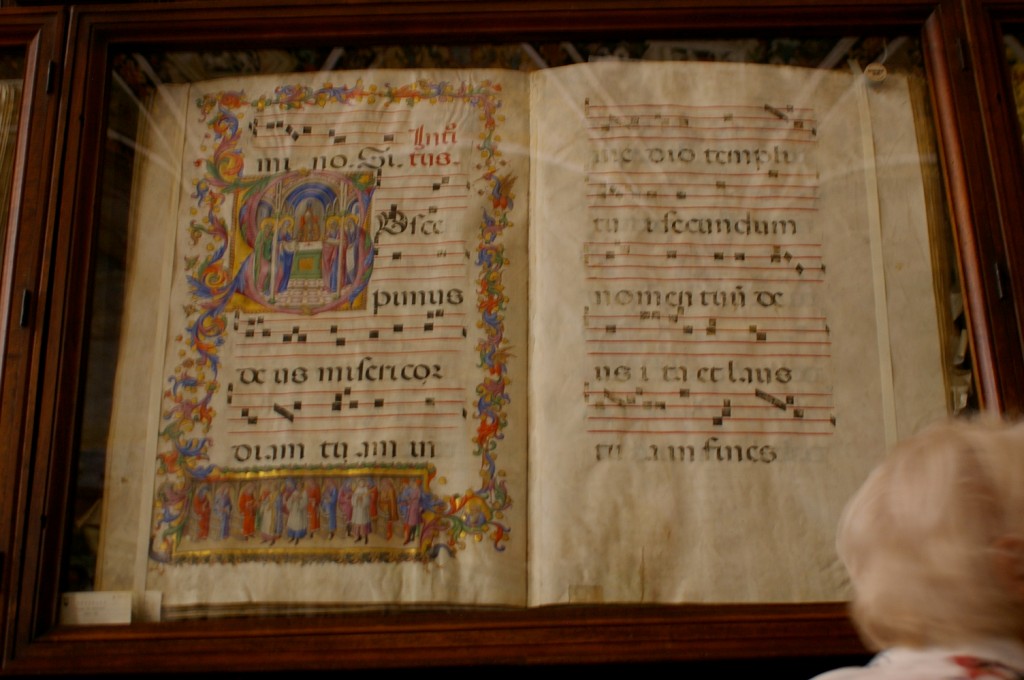 Inti
mi no. Si. tus.
Osce
pimus
de us misericor
diam tu am in
me dio templi
tu i secundum
nomen tuū de
us i ta et laus
tu a in fines